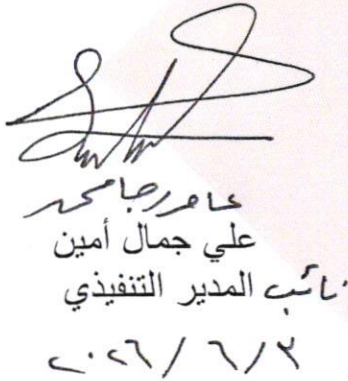 عامر رجا محمد
علي جمال أمين
نائب المدير التنفيذي
٢٠٢٦ / ٦ / ٣